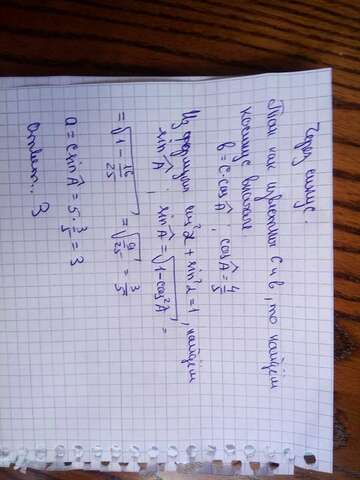 Через синус.
Так как известны c и b, то найдём
косинус вначале
b = c·cosÂ; cosÂ = 4/5
Из формулы cos²α + sin²α = 1, найдём
sinÂ; sinÂ = √(1-cos²A) =
= √(1 - 16/25) = √(9/25) = 3/5
a = c sinÂ = 5·3/5 = 3
Ответ: 3